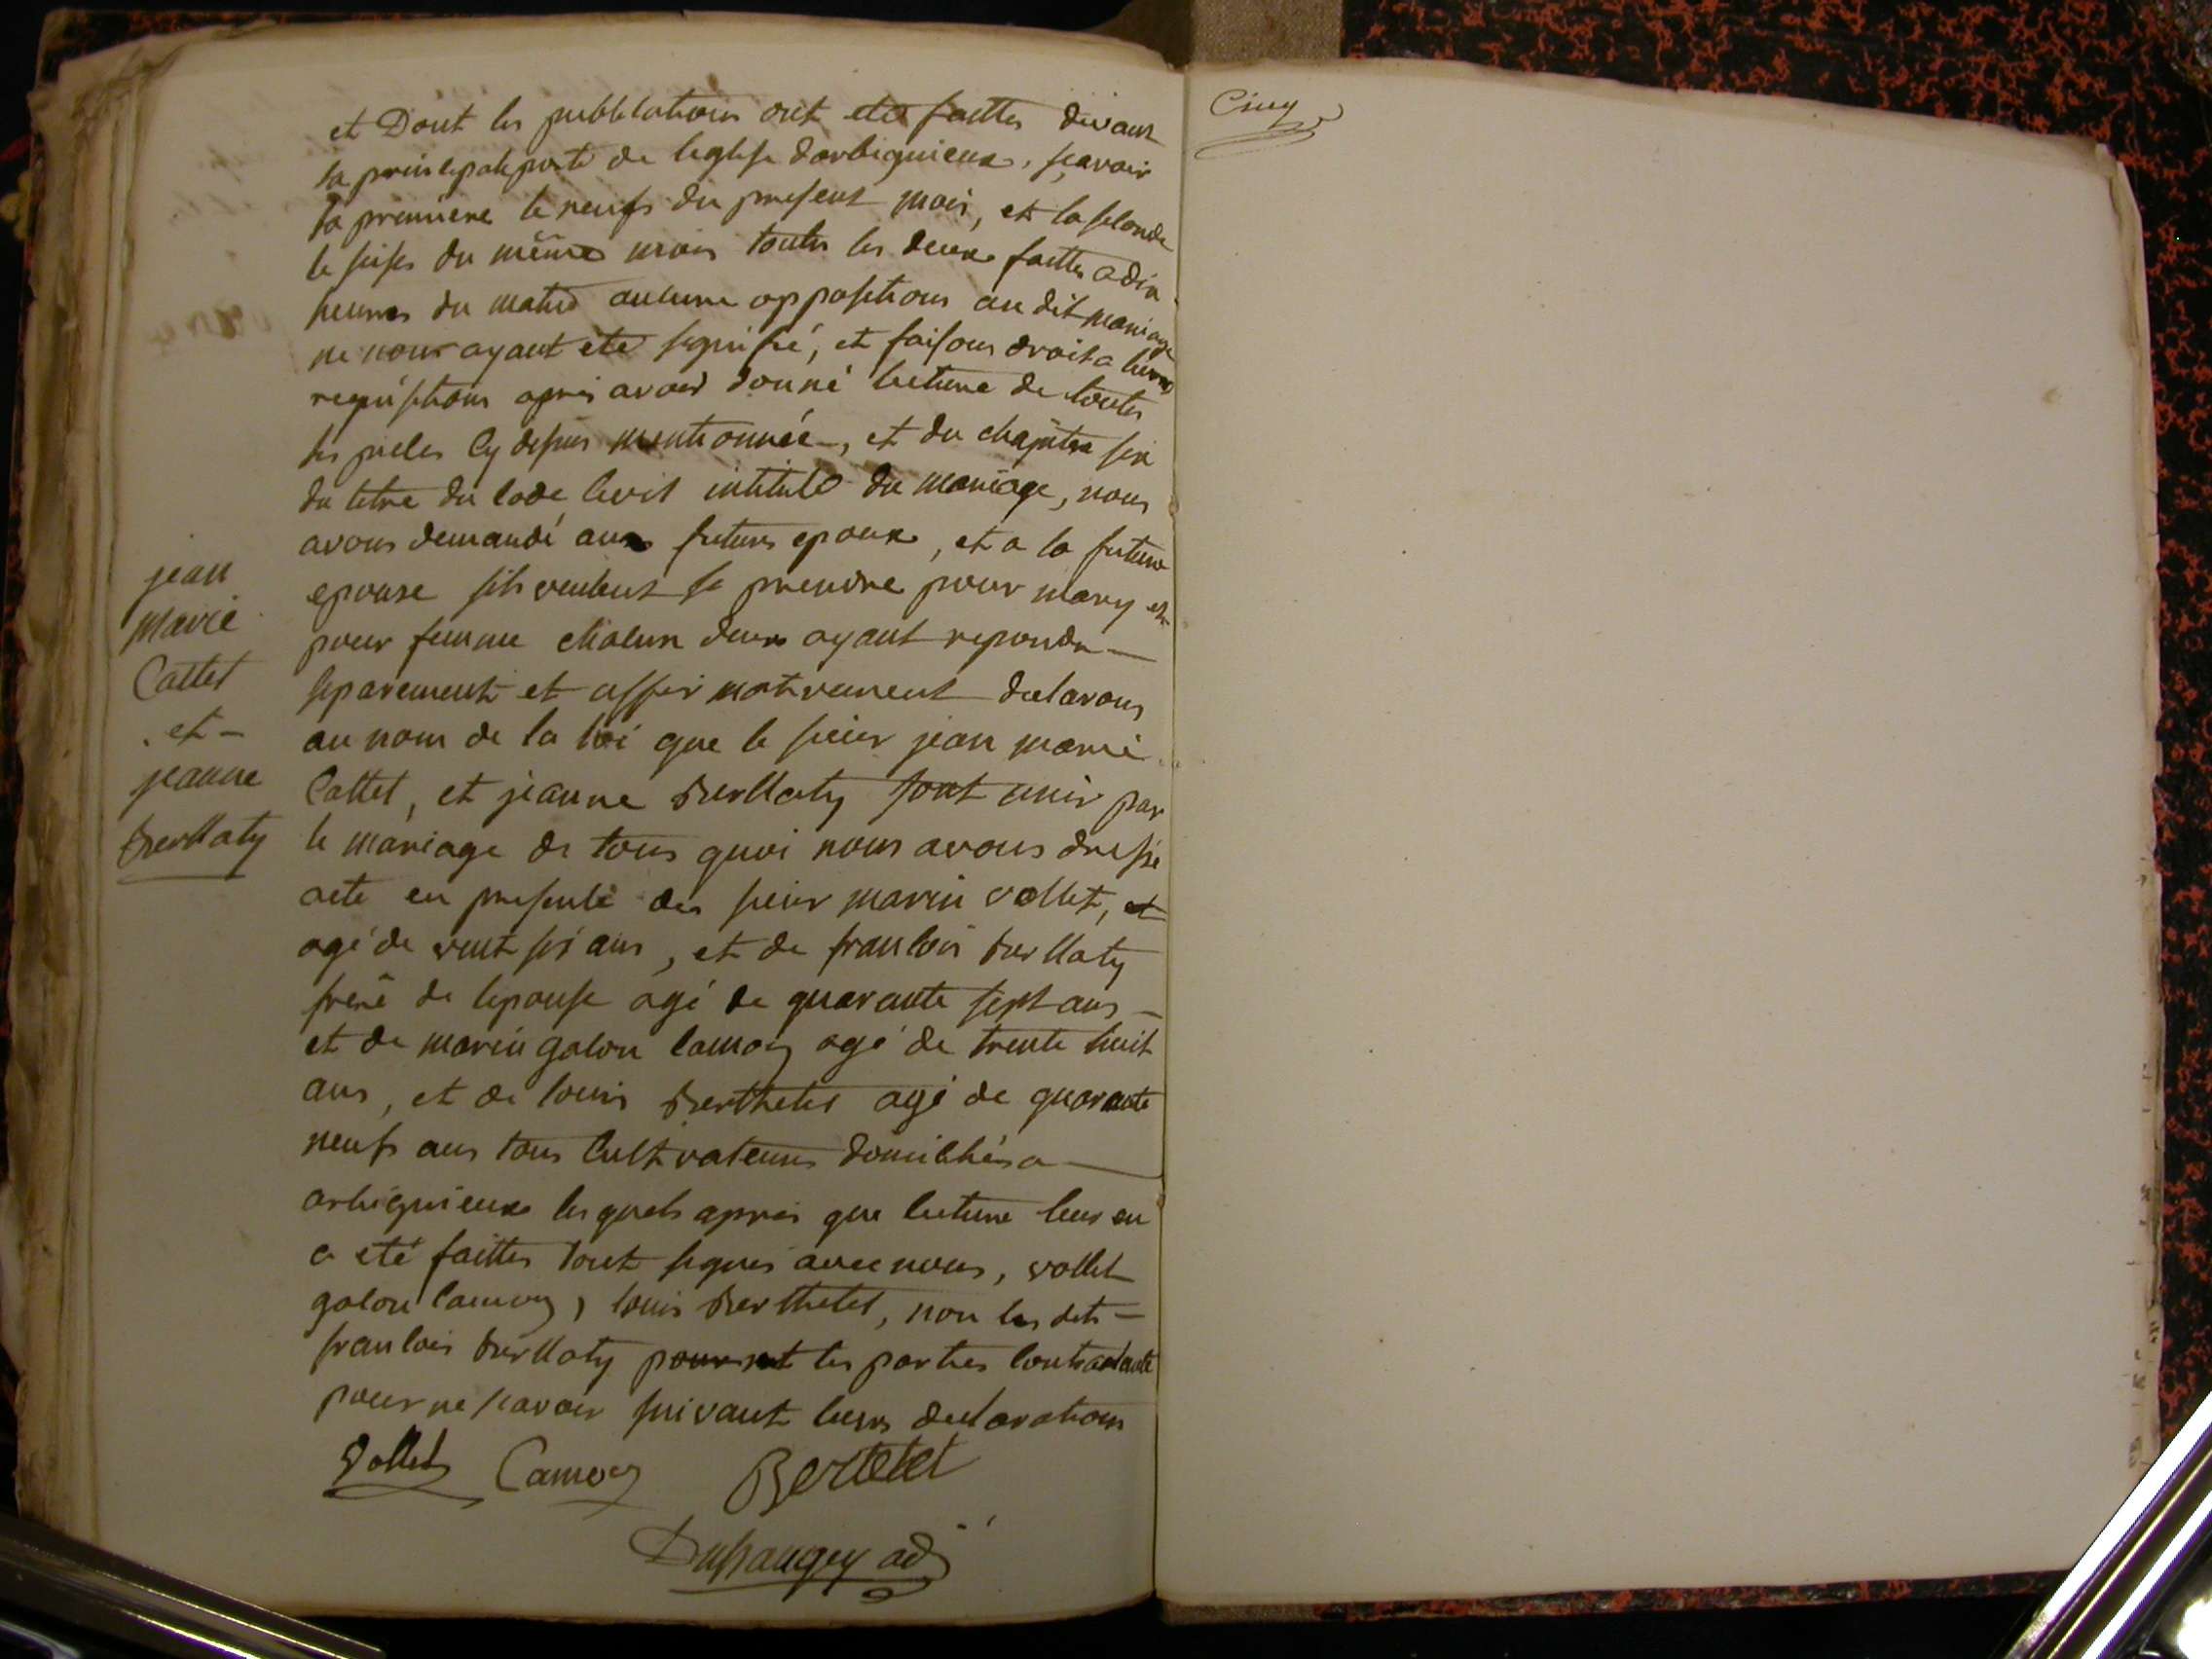 et Dont les publications ont eté faittes devant
la principale porte de leglise darbignieux, sçavoir
la premiere le neufs du present mois, et la seconde
le seises du même mois toutes les deux faittes a dix
heures du matin aucune oppositions au dit mariage
ne nous ayant eté signifié, et faisons droit a leurs
requisitions apres avoir donné lecture de toutes
les pieces cy desus mentionnée, et du chapitre six
du titre du code civil intitulé du mariage, nous
avons demandé aux futurs epoux, et a la future
epouse sils veulent se prendre pour mary et
pour femme chacun deux ayant repondu —
separement et affirmativement declarons
au nom de la loi que le sieur jean marie
Cattet, et jeanne Berlioty sont unis par
le mariage de tous quoi nous avons dressé
acte en presence des sieur marin vollet, et
agé de vent six ans, et de francois Berlioty
frere de lepouse agé de quarante sept ans —
et de marin galon camoy agé de trente huit
ans, et de louis Berthetet agé de quarante
neufs ans tous cultivateurs domiciliés a —
arbignieux lesquels apres que lecture leur en
a eté faittes sont signés avec nous, vollet
galon camoy, louis Berthetet, non les dits —
francois Berlioty et les parties contractante
pour ne scavoir suivant leurs declarations
Vollet Camoy Bertetet
Duhaugey adj
jean
Marie
Cattet
et —
jeanne
Berlioty
Cinq